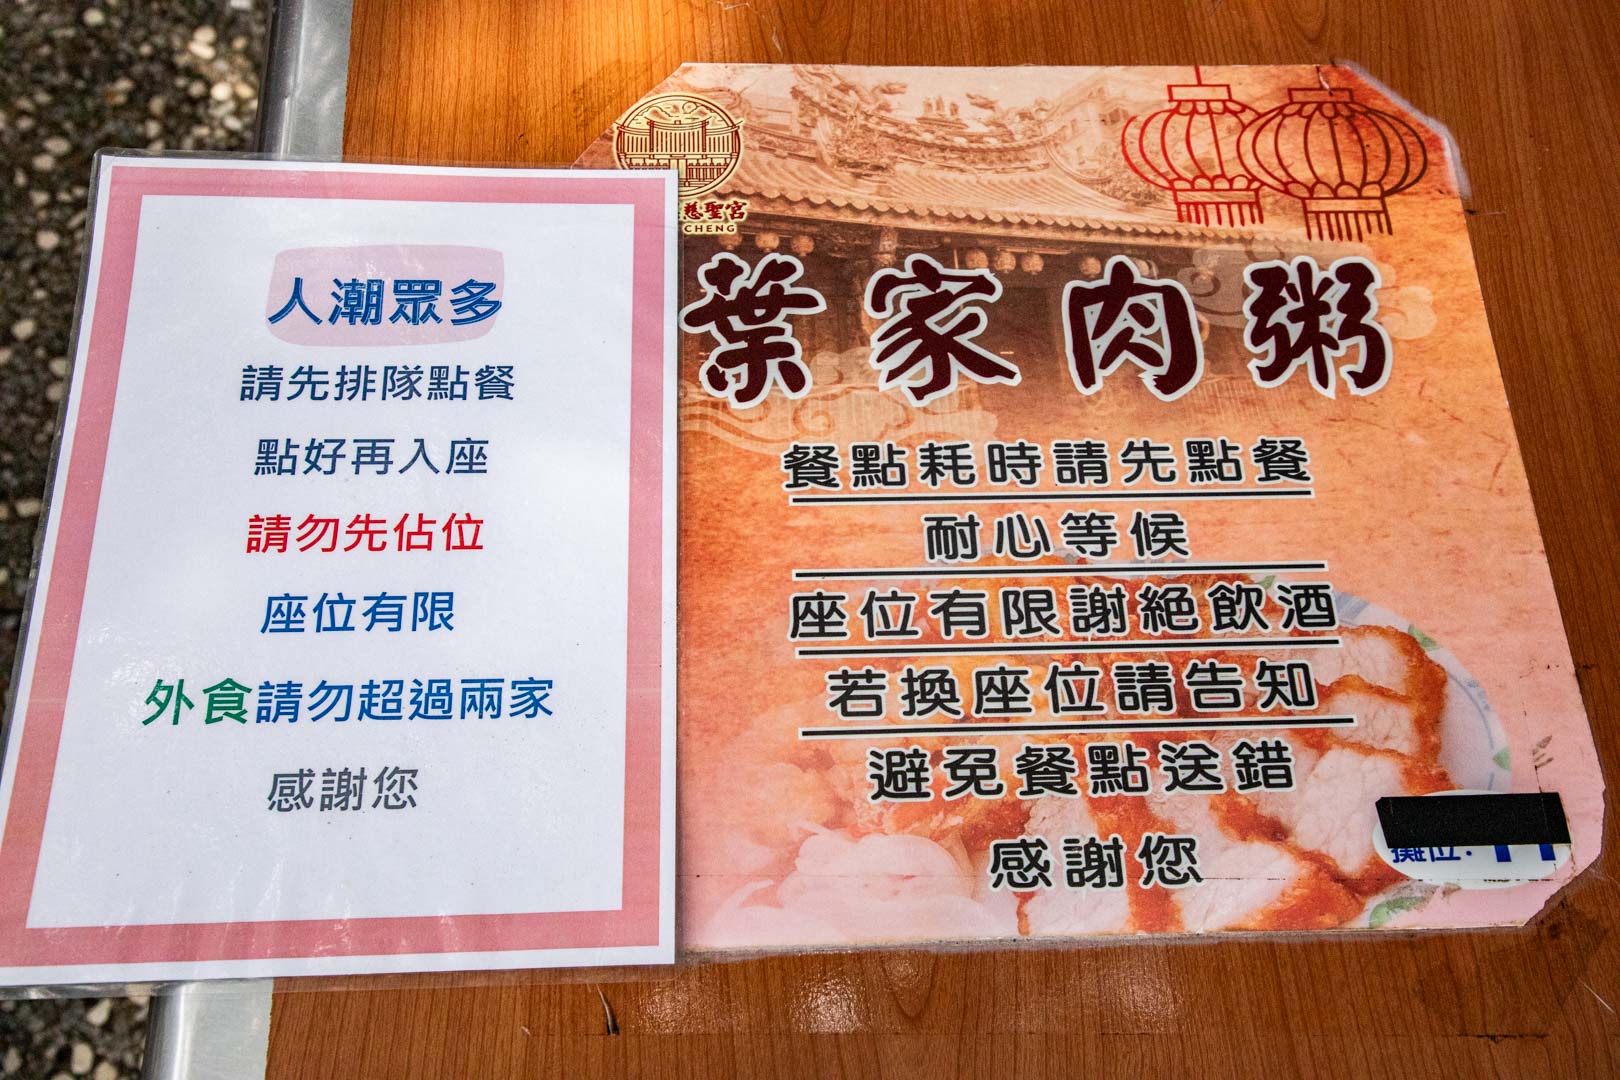 人潮眾多
請先排隊點餐
點好再入座
請勿先佔位
座位有限
外食請勿超過兩家
感謝您
慈聖宮
CHENG
葉家肉粥
餐點耗時請先點餐
耐心等候
座位有限謝絕飲酒
若換座位請告知
避免餐點送錯
感謝您
攤位: